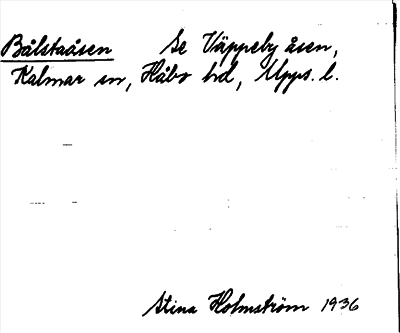 Bålstaåsen Se Väppeby åsen,
Kalmar sn, Håbo hd, Upps. l.
Stina Holmström 1936